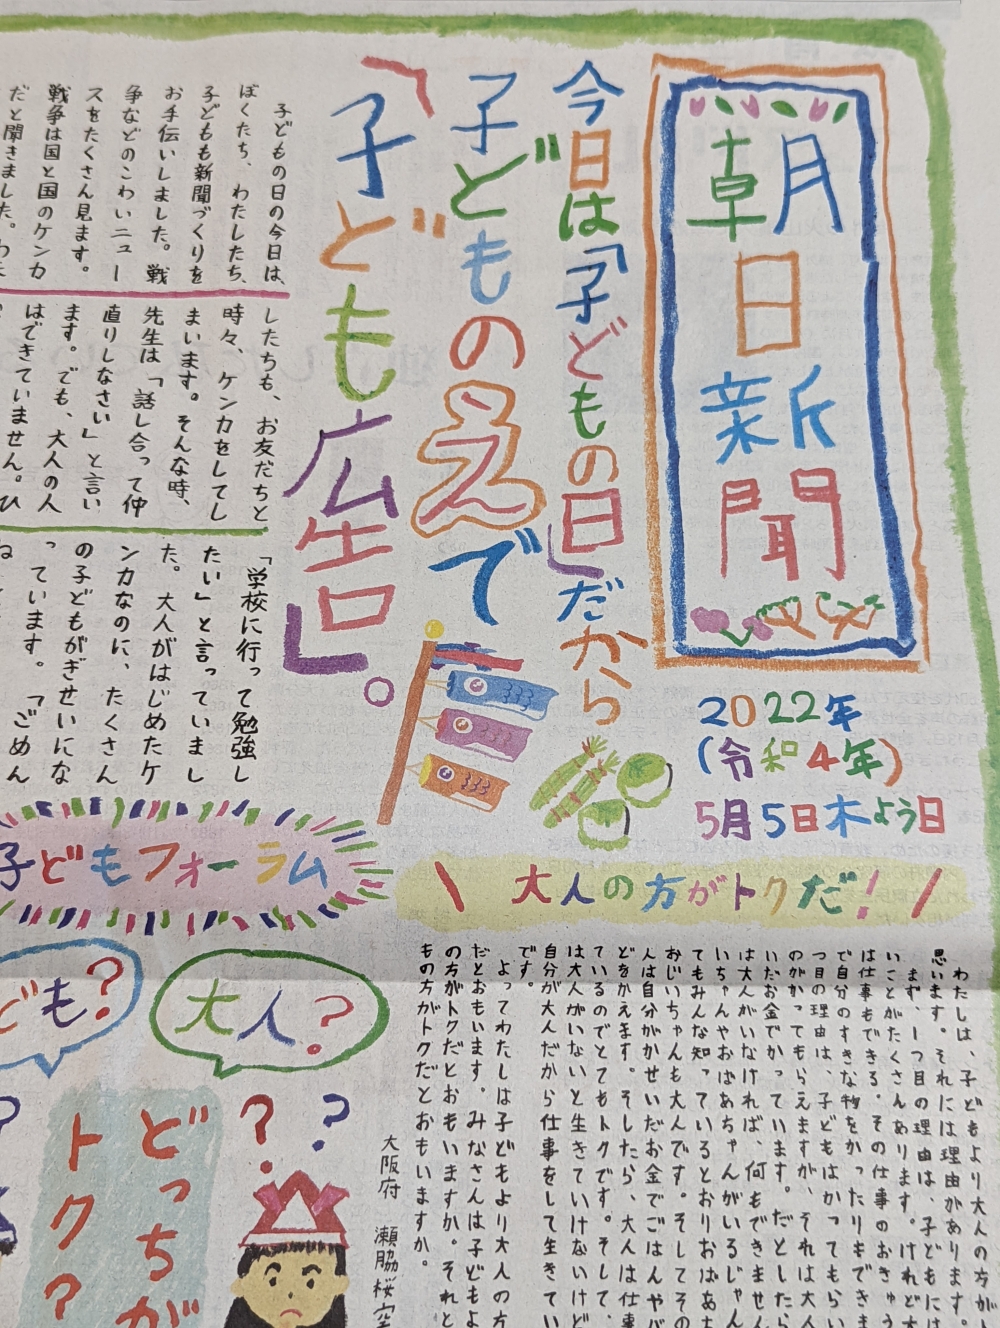 朝日新聞
2022年
(令和4年)
5月5日木よう日
今日は「子どもの日」だから
子どものえで
「子ども広告」。
子どもの日の今日は、
ぼくたち、わたしたち、
子どもも新聞づくりを
お手伝いしました。戦
争などのこわいニュー
スをたくさん見ます。
戦争は国と国のケンカ
だと聞きました。わた
したちも、お友だちと
時々、ケンカをしてし
まいます。そんな時、
先生は「話し合って仲
直りしなさい」と言い
ます。でも、大人の人
はできていません。ひ
「学校に行って勉強し
たい」と言っていまし
た。大人がはじめたケ
ンカなのに、たくさん
の子どもがぎせいにな
っています。「ごめん
ね
子どもフォーラム
大人の方がトクだ!
わたしは、子どもより大人の方がト
思います。それには理由があります。
まず、1つ目の理由は、子どもには
いことがたくさんあります。けれど大
は仕事もできる。その仕事のおきゅう
で自分のすきな物をかったりもできま
つ目の理由は、子どもはかってもらい
のがかってもらえますが、それは大人
いだお金でかっています。だとしたら
は大人がいなければ、何もできません
いちゃんやおばあちゃんがいるじゃん
てもみんな知っているとおりおばあち
おじいちゃんも大人です。そしてその
人は自分がかせいだお金でごはんやバ
どをかえます。そしたら、大人は仕事
ているのでとてもトクです。そして、
は大人がいないと生きていけないけど
自分が大人だから仕事をして生きてい
です。
よってわたしは子どもより大人の方
だとおもいます。みなさんは子どもよ
の方がトクだとおもいますか。それと
もの方がトクだとおもいますか。
大阪府 瀬脇桜空
大人?
ども?
どっちが
トク?